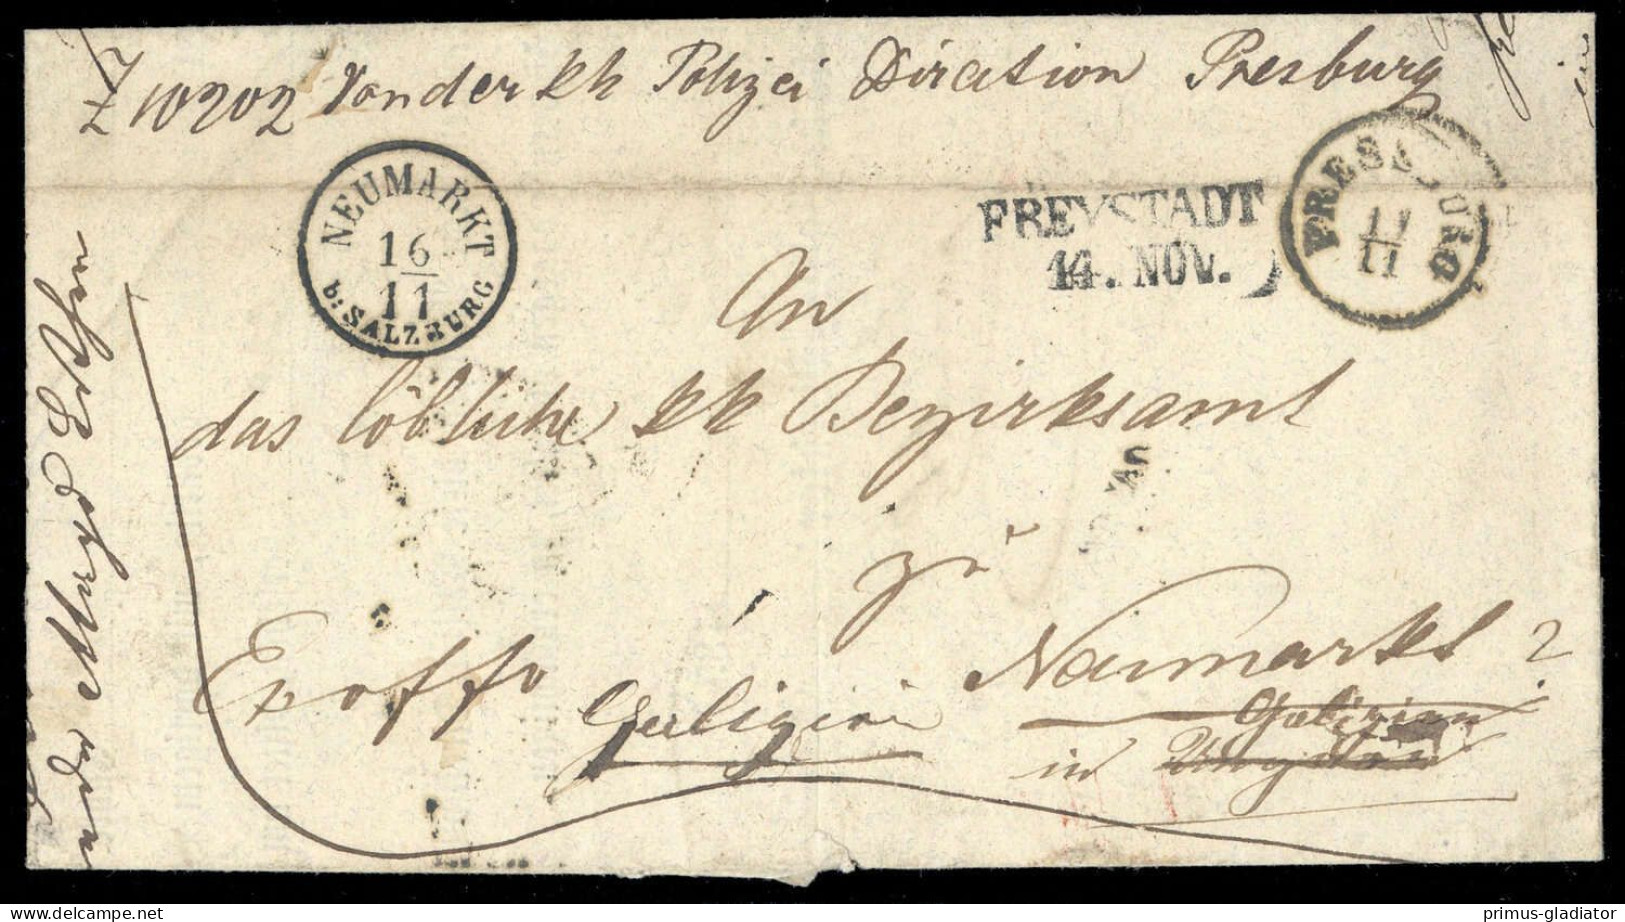 Z 10202 Von der kk Polizei Diraction Presburg
NEUMARKT
16
11
b: SALZBURG
FREYSTADT
14. NOV.
PRESSBURG
11
11
An
das löbliche kk Bezirksamt
zu
Exoffo
Neumarkt ?
Galizien
Galizien
in Ungarn
primus-gladiator